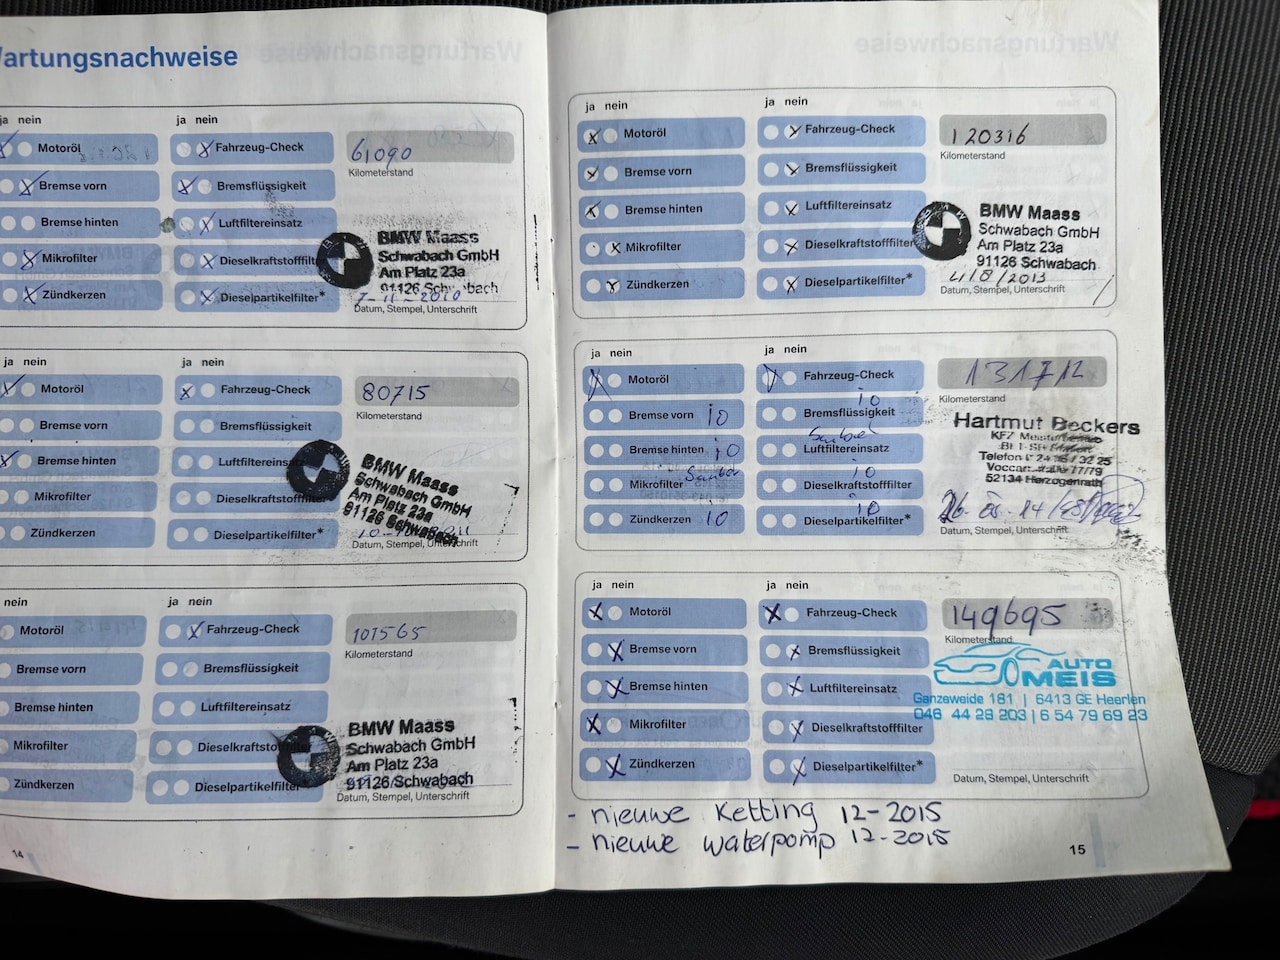 Wartungsnachweise
ja nein
ja nein
Motoröl
Fahrzeug-Check
61090
Kilometerstand
Bremse vorn
Bremsflüssigkeit
Bremse hinten
Luftfiltereinsatz
Mikrofilter
Dieselkraftstofffilter
Zündkerzen
Dieselpartikelfilter*
BMW Maass
Schwabach GmbH
Am Platz 23a
91126 Schwabach
7-11-2010
Datum, Stempel, Unterschrift
ja nein
ja nein
Motoröl
Fahrzeug-Check
80715
Kilometerstand
Bremse vorn
Bremsflüssigkeit
Bremse hinten
Luftfiltereinsatz
Mikrofilter
Dieselkraftstofffilter
Zündkerzen
Dieselpartikelfilter*
BMW Maass
Schwabach GmbH
Am Platz 23a
91126 Schwabach
Datum, Stempel, Unterschrift
nein
ja nein
Motoröl
Fahrzeug-Check
101565
Kilometerstand
Bremse vorn
Bremsflüssigkeit
Bremse hinten
Luftfiltereinsatz
Mikrofilter
Dieselkraftstofffilter
Zündkerzen
Dieselpartikelfilter*
BMW Maass
Schwabach GmbH
Am Platz 23a
91126 Schwabach
Datum, Stempel, Unterschrift
14
ja nein
ja nein
Motoröl
Fahrzeug-Check
120316
Kilometerstand
Bremse vorn
Bremsflüssigkeit
Bremse hinten
Luftfiltereinsatz
Mikrofilter
Dieselkraftstofffilter
Zündkerzen
Dieselpartikelfilter*
BMW Maass
Schwabach GmbH
Am Platz 23a
91126 Schwabach
4/8/2013
Datum, Stempel, Unterschrift
ja nein
ja nein
Motoröl
Fahrzeug-Check
131712
Kilometerstand
Bremse vorn io
Bremsflüssigkeit io
Bremse hinten io
Luftfiltereinsatz
Mikrofilter
Dieselkraftstofffilter io
Zündkerzen io
Dieselpartikelfilter* io
Hartmut Beckers
52134 Herzogenrath
Datum, Stempel, Unterschrift
ja nein
ja nein
Motoröl
Fahrzeug-Check
149695
Kilometerstand
Bremse vorn
Bremsflüssigkeit
Bremse hinten
Luftfiltereinsatz
Mikrofilter
Dieselkraftstofffilter
Zündkerzen
Dieselpartikelfilter*
AUTO
MEIS
Ganzeweide 181 | 6413 GE Heerlen
045 44 28 203 | 6 54 79 69 23
Datum, Stempel, Unterschrift
- nieuwe Ketting 12-2015
- nieuwe waterpomp 12-2015
15